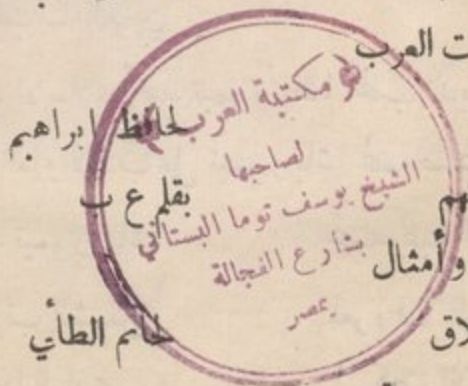 ت العرب
لحافظ ابراهيم
هم بقلم ع ب
وأمثال
لاق لحاتم الطائي
مكتبة العرب
لصاحبها
الشيخ يوسف توما البستاني
بشارع الفجالة
بمصر